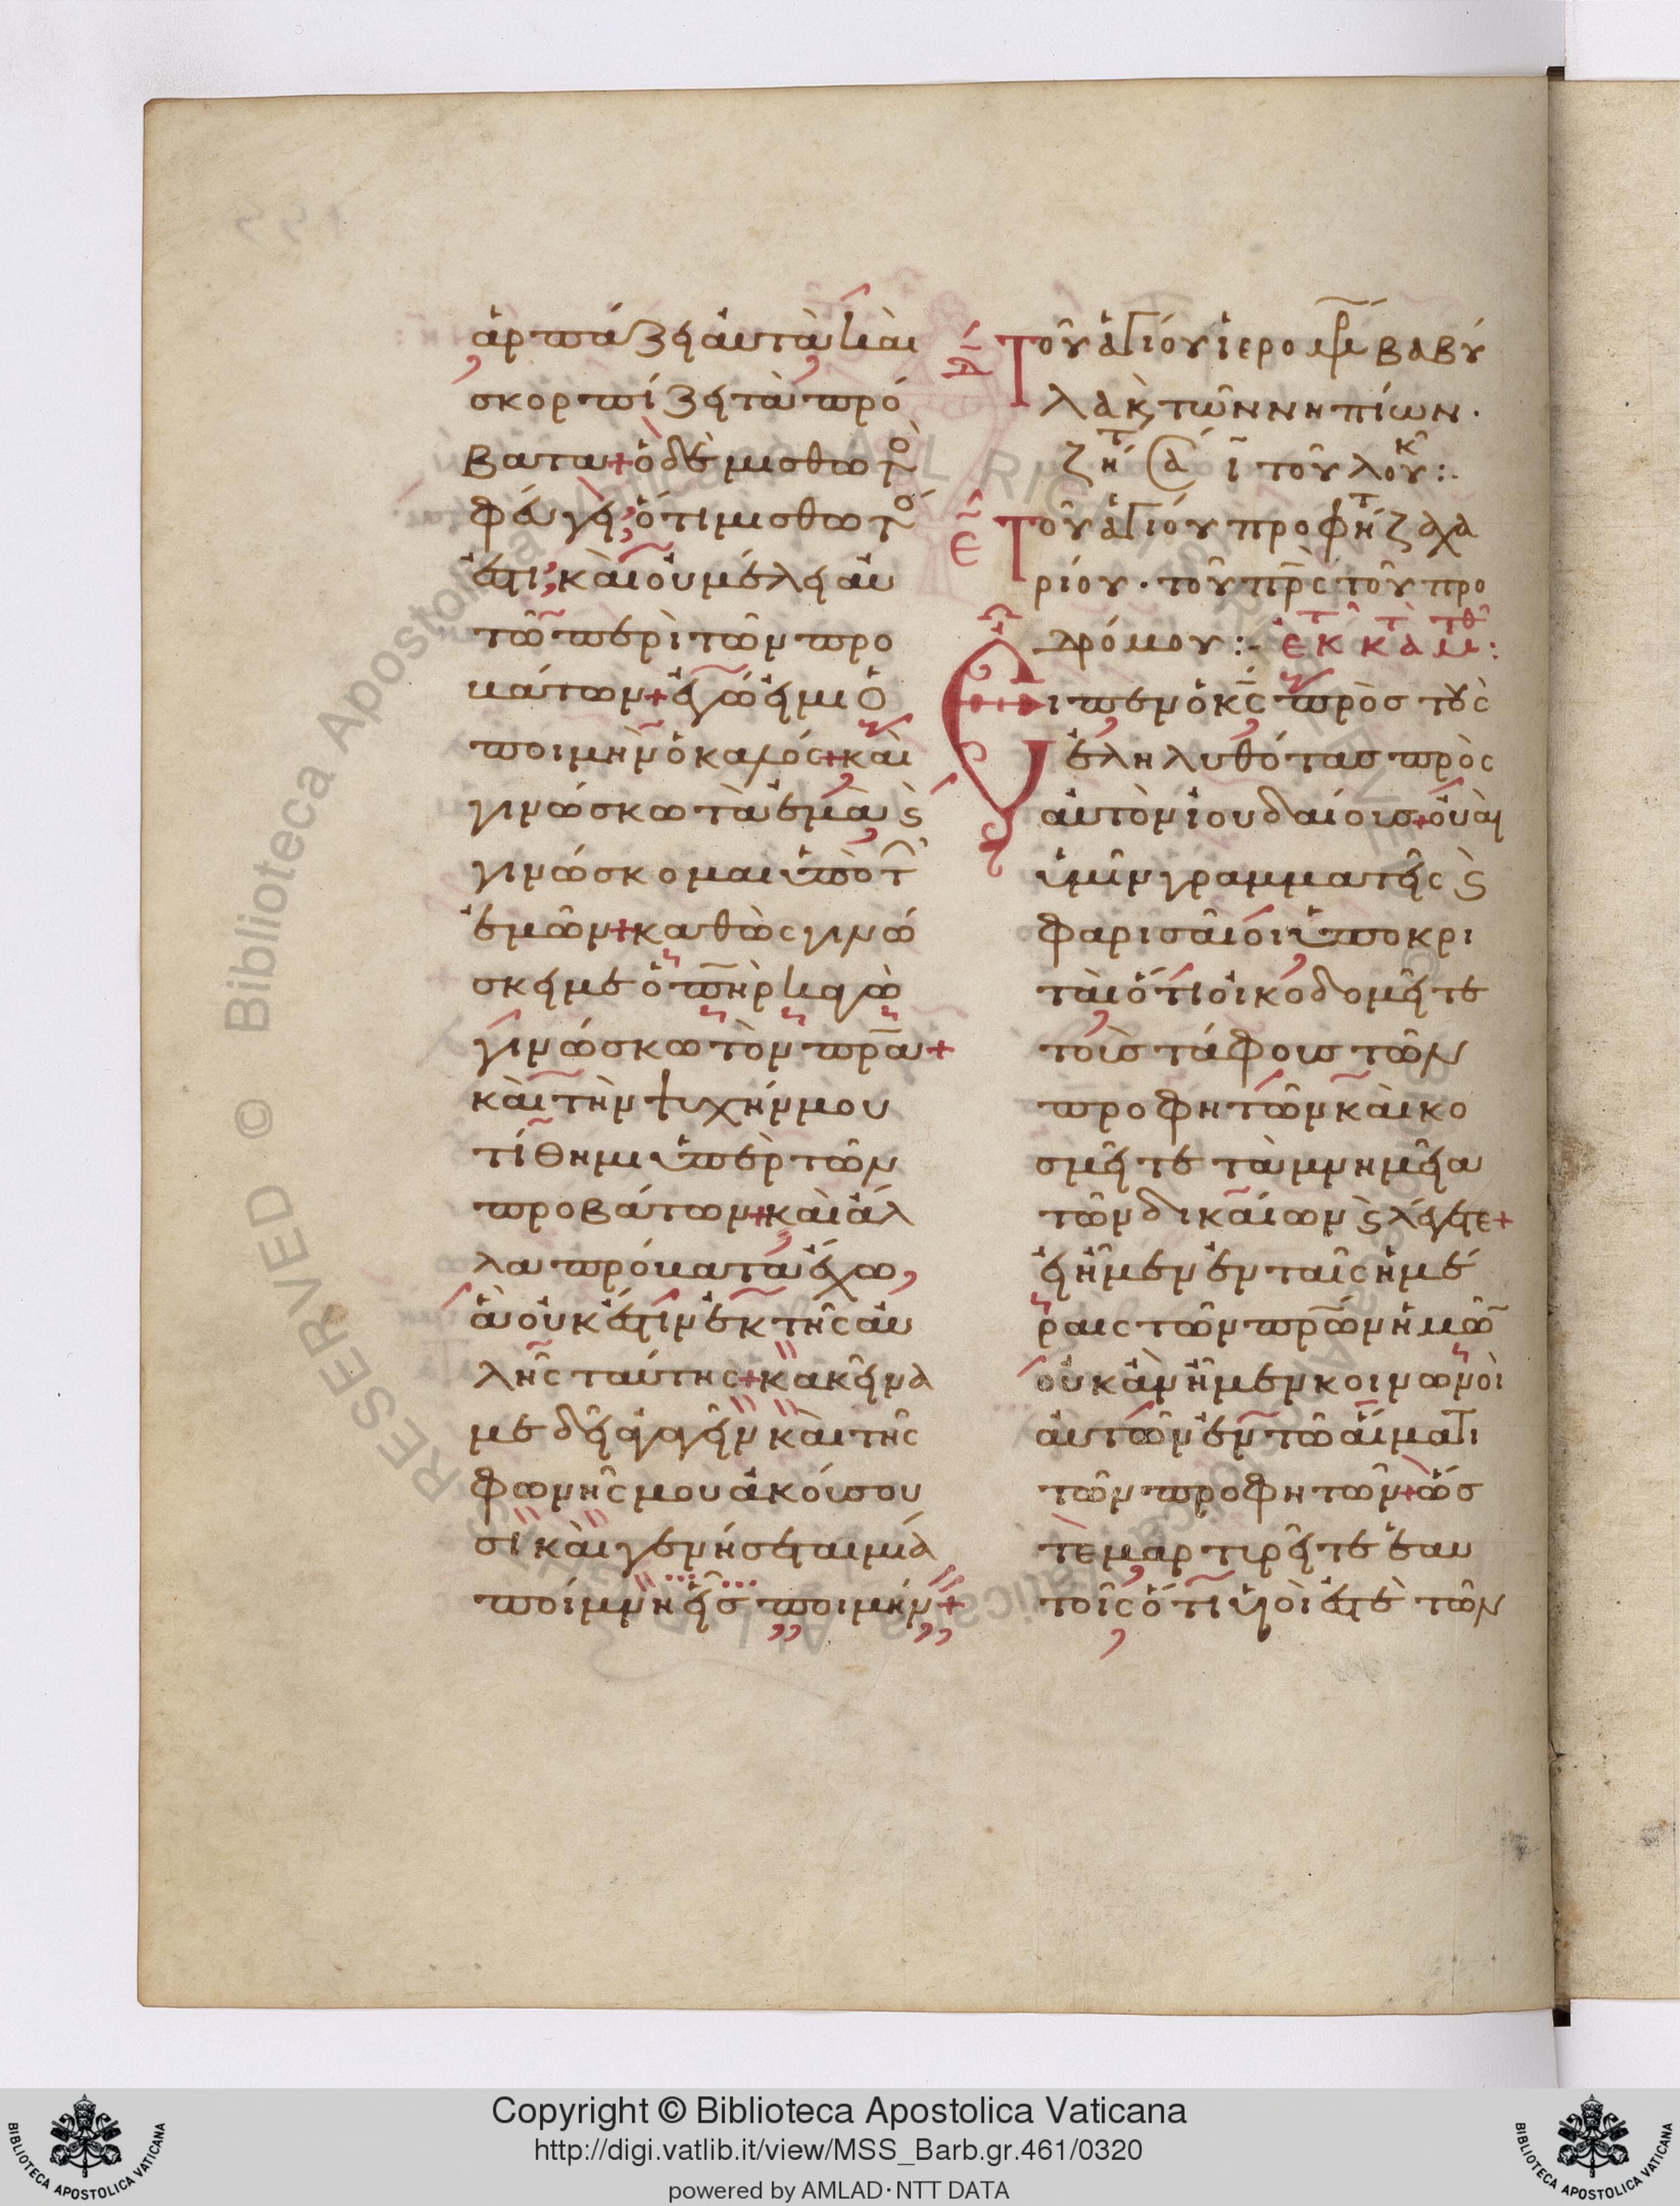 ἁρπάζει αυτὰ καὶ
σκορπίζει τὰ πρό
βατα+ὁ δὲ μισθωτὸ
φέυγει, ὅτι μισθωτό
ἐστι, καὶ οὐ μέλει αυ
τῶ περὶ τῶν προ
βάτων+ἐγώ εἰμι ὁ
ποιμὴν ὁ καλός+καὶ
γινώσκω τὰ ἐμὰ ϛ
γινώσκομαι ὑπὸ τ
ἐμῶν+καθὼς γινώ
σκει με ὁ πηρ καγὼ
γινώσκω τὸν πρα+
καὶ τὴν ψυχήν μου
τίθημι ὑπὲρ τῶν
προβάτων+καὶ ἀλ
λα πρόβατα ἔχω,
ἃ οὐκ ἔστιν ἐκ τῆς αυ
λῆς ταύτης+κακεῖνα
με δεῖ ἀγαγεῖν καὶ τῆς
φωνῆς μου ἀκούσου
σι καὶ γενήσεται μιὰ
ποίμνη εἷσ ποιμήν+
δ Τοῦ ἁγίου ἱερομ βαβύ
λα κ τῶν νηπίων.
ζητ σα ι τοῦ λουκ:.
ε Τοῦ ἁγίου προφήτ ζαχα
ρίου. τοῦ πρς τοῦ προ
δρόμου:. ἐκ τ κ τ μτθ:
Εἶπεν ὁ κς πρὸσ τοὺς
ἐληλυθότασ πρὸς
αὐτὸν ἰουδαίους+οὐαὶ
ὑμῖν γραμματεῖς ϛ
φαρισαῖοι ὑποκρι
ταὶ ὅτι οἰκοδομεῖτε
τοὺσ τάφουσ τῶν
προφητῶν καὶ κο
σμεῖτε τὰ μνημεῖα
τῶν δικαίων ϛ λέγετε+
εἰ ἦμεν ἐν ταῖς ἡμέ
ραις τῶν πρων ἡμῶ
οὐκ ἂν ἦμεν κοινωνοὶ
αὐτῶν ἐν τῶ αἵματι
τῶν προφητῶν+ὥσ
τε μαρτυρεῖτε ἑαυ
τοῖς ὅτι ὑιοί ἐστὲ τῶν
Copyright © Biblioteca Apostolica Vaticana
http://digi.vatlib.it/view/MSS_Barb.gr.461/0320
powered by AMLAD·NTT DATA